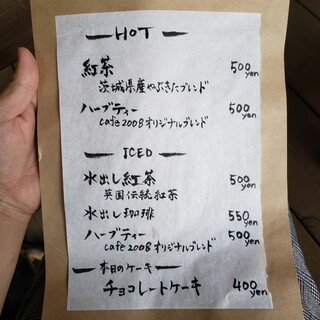 HOT
紅茶 500 yen
茨城県産やぶきたブレンド
ハーブティー 500 yen
cafe2008オリジナルブレンド
ICED
水出し紅茶 500 yen
英国伝統紅茶
水出し珈琲 550 yen
ハーブティー 500 yen
cafe2008オリジナルブレンド
本日のケーキ
チョコレートケーキ 400 yen